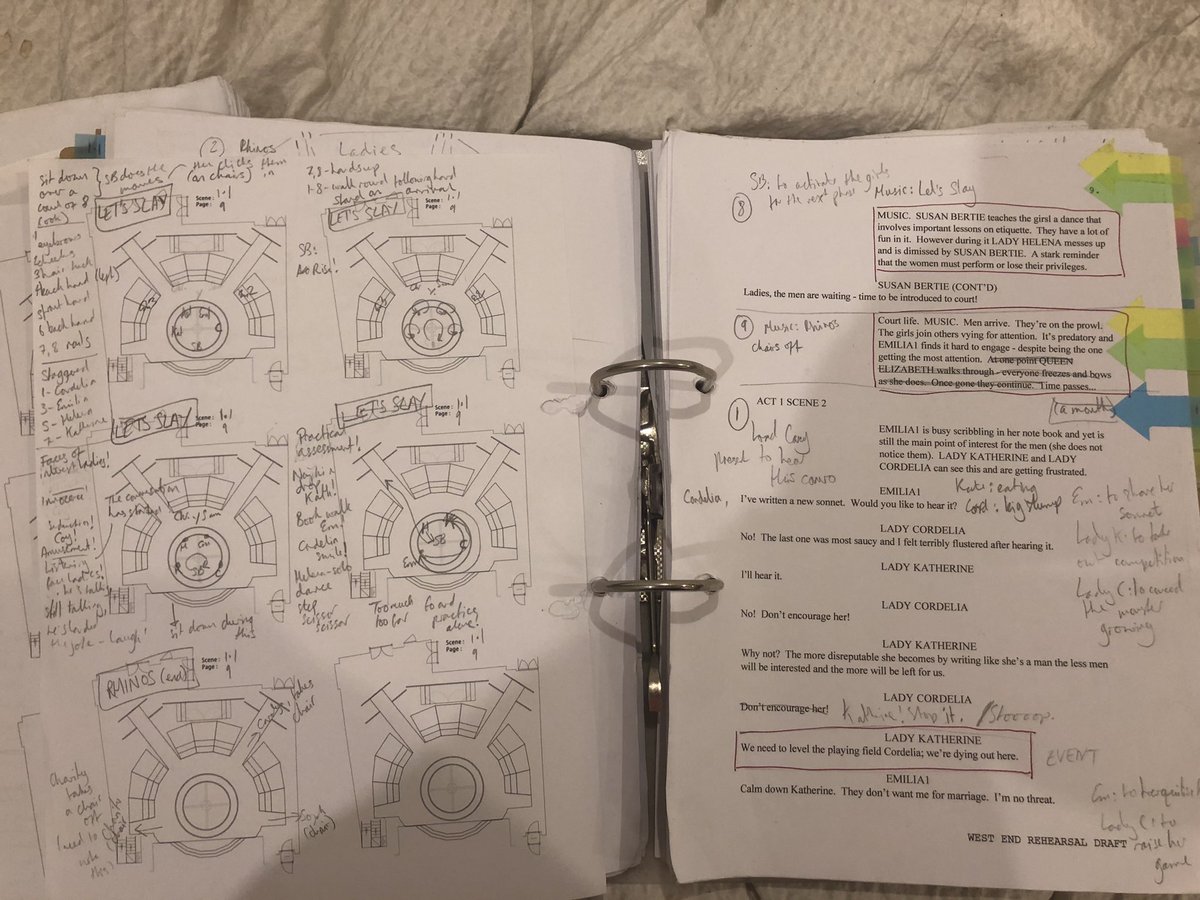 ② Rhinos
Ladies
Sit down
over a
count of 8
(ook)
SB does the
moves
Her clicks them
(on chairs) in
LET'S SLAY
Scene: 1.1
Page: 9
7,8 - hands up
1-8 - walk round following hand
stand on arrival
LET'S SLAY
Scene: 1.1
Page: 9
eyebrows
3 hair tuck
hand (left)
5 front hand
6 back hand
7,8
Staggered
1 - Cordelia
3 - Emilia
5 - Helena
7 - Katherine
SB:
And Rise!
LET'S SLAY
Scene: 1.1
Page: 9
Faces of
interest ladies!
Innocence!
Coy!
Amusement!
Listening
he's talking
still talking
joke - laugh!
The conversation
has started
Chr. / Sam
sit down during
this
LET'S SLAY
Scene: 1.1
Page: 9
Practical
assessment!
Napkin
drop
Kath!
Book walk
Em!
Cordelia
smile!
Helena - solo
dance
step
scissor
scissor
Too much
Too far
Go and
practice
alone!
RHINOS (end)
Scene: 1.1
Page: 9
takes
chair
Charity
takes
a chair
off
(need to
note
this)
(chair)
Scene: 1.1
Page: 9
SB: to activate the girls
for the next phase
Music: Let's Slay
⑧
9.
MUSIC. SUSAN BERTIE teaches the girsl a dance that
involves important lessons on etiquette. They have a lot of
fun in it. However during it LADY HELENA messes up
and is dimissed by SUSAN BERTIE. A stark reminder
that the women must perform or lose their privileges.
SUSAN BERTIE (CONT'D)
Ladies, the men are waiting - time to be introduced to court!
⑨ Music: Rhinos
chairs off
Court life. MUSIC. Men arrive. They're on the prowl.
The girls join others vying for attention. It's predatory and
EMILIA1 finds it hard to engage - despite being the one
getting the most attention. At one point QUEEN
ELIZABETH walks through - everyone freezes and bows
as she does. Once gone they continue. Time passes...
(a month)
① ACT 1 SCENE 2
Lord Cary
pressed to hear
this convo
EMILIA1 is busy scribbling in her note book and yet is
still the main point of interest for the men (she does not
notice them). LADY KATHERINE and LADY
CORDELIA can see this and are getting frustrated.
EMILIA1
Kate: eating
Cord: big slump
Cordelia,
I've written a new sonnet. Would you like to hear it?
Em: to share her
sonnet
LADY CORDELIA
No! The last one was most saucy and I felt terribly flustered after hearing it.
Lady K: to take
out competition
LADY KATHERINE
I'll hear it.
LADY CORDELIA
No! Don't encourage her!
Lady C: to
the monster
growing
LADY KATHERINE
Why not? The more disreputable she becomes by writing like she's a man the less men
will be interested and the more will be left for us.
LADY CORDELIA
Don't encourage her! Kathrine! Stop it. / Stoooop.
LADY KATHERINE
We need to level the playing field Cordelia; we're dying out here.
EVENT
EMILIA1
Calm down Katherine. They don't want me for marriage. I'm no threat.
Em: to
Lady C: to
raise her
game
WEST END REHEARSAL DRAFT